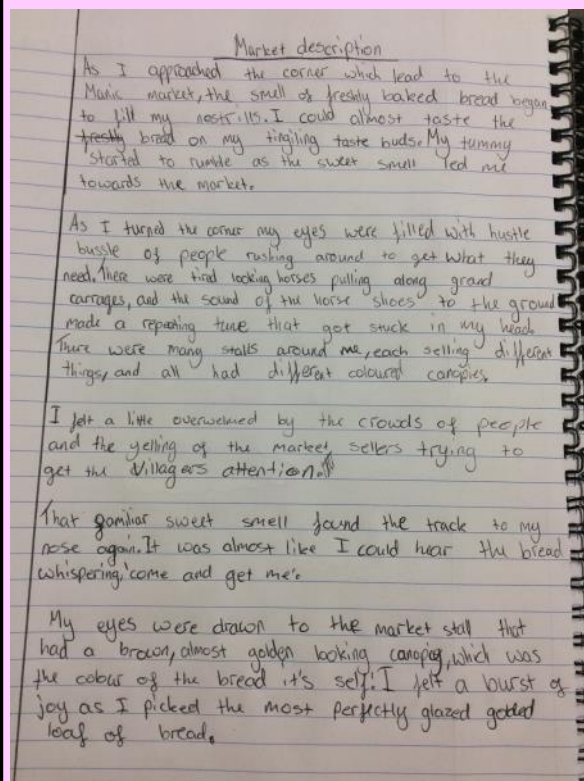 Market description
As I approached the corner which lead to the
Manic market, the smell of freshly baked bread began
to fill my nostrills. I could almost taste the
freshly bread on my tingiling taste buds. My tummy
started to rumble as the sweet smell led me
towards the market.
As I turned the corner my eyes were filled with hustle
bussle of people rushing around to get what they
need. There were tired looking horses pulling along grand
carrages, and the sound of the horse shoes to the ground
made a repeating tune that got stuck in my head.
There were many stalls around me, each selling different
things, and all had different coloured canopies.
I felt a little overwelmed by the crowds of people
and the yelling of the market sellers trying to
get the villagers attention.
That gamiliar sweet smell found the track to my
nose again. It was almost like I could hear the bread
whispering, 'come and get me'.
My eyes were drawn to the market stall that
had a brown, almost golden looking which was
the colour of the bread it's self! I felt a burst of
joy as I picked the most perfectly glazed
loaf of bread.